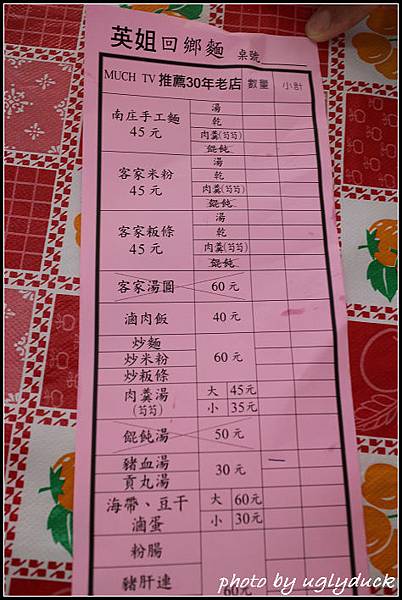 英姐回鄉麵 桌號
MUCH TV推薦30年老店 數量 小計
南庄手工麵 45元
湯
乾
肉羹(芶芶)
餛飩
客家米粉 45元
湯
乾
肉羹(芶芶)
餛飩
客家粄條 45元
湯
乾
肉羹(芶芶)
餛飩
客家湯圓 60元
滷肉飯 40元
炒麵
炒米粉 60元
炒粄條
肉羹湯 大 45元
(芶芶) 小 35元
餛飩湯 50元
豬血湯 30元
貢丸湯
海帶、豆干 大 60元
滷蛋 小 30元
粉腸
豬肝連 60元
photo by uglyduck